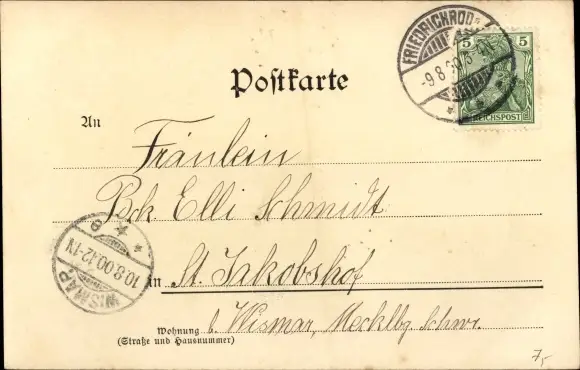 FRIEDRICHRODA
-9.8.00
5 5
REICHSPOST
Poſtkarte
An
Fräulein
Elli Schmidt
in St. Jakobshof
WISMAR.
10.8.00.12-1N
Wohnung b. Wismar, Mecklbg. Schwr.
(Straße und Hausnummer)